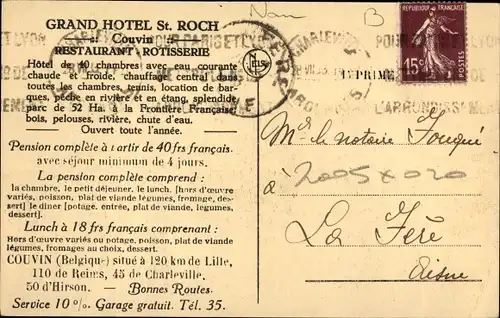 GRAND HOTEL St. ROCH
Couvin
RESTAURANT-ROTISSERIE
Hôtel de 40 chambres avec eau courante
chaude et froide, chauffage central dans
toutes les chambres, tennis, location de bar-
ques, pêche en rivière et en étang, splendide
parc de 52 Ha. à la Frontière Française,
bois, pelouses, rivière, chute d'eau.
Ouvert toute l'année.
Pension complète à partir de 40 frs français.
avec séjour minimum de 4 jours.
La pension complète comprend :
la chambre, le petit déjeuner, le lunch, [hors d'œuvre
variés, poisson, plat viande légumes, fromage, des-
sert] le dîner [potage, entrée, plat de viande, légumes,
dessert].
Lunch à 18 frs français comprenant :
Hors d'œuvres variés ou potage, poisson, plat de viande
légumes, fromages au choix, dessert.
COUVIN (Belgique) situé à 120 km de Lille,
110 de Reims, 45 de Charleville,
50 d'Hirson. — Bonnes Routes.
Service 10 %. Garage gratuit. Tél. 35.
Nam
B
REPUBLIQUE FRANÇAISE
15c
POSTES
IMPRIMÉ
L'ARRONDISSEME
Mr le notaire Fouqué
à
2005x020
La Fère
Aisne